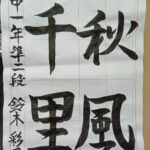 秋風
千里
中一年準二段 鈴木彩